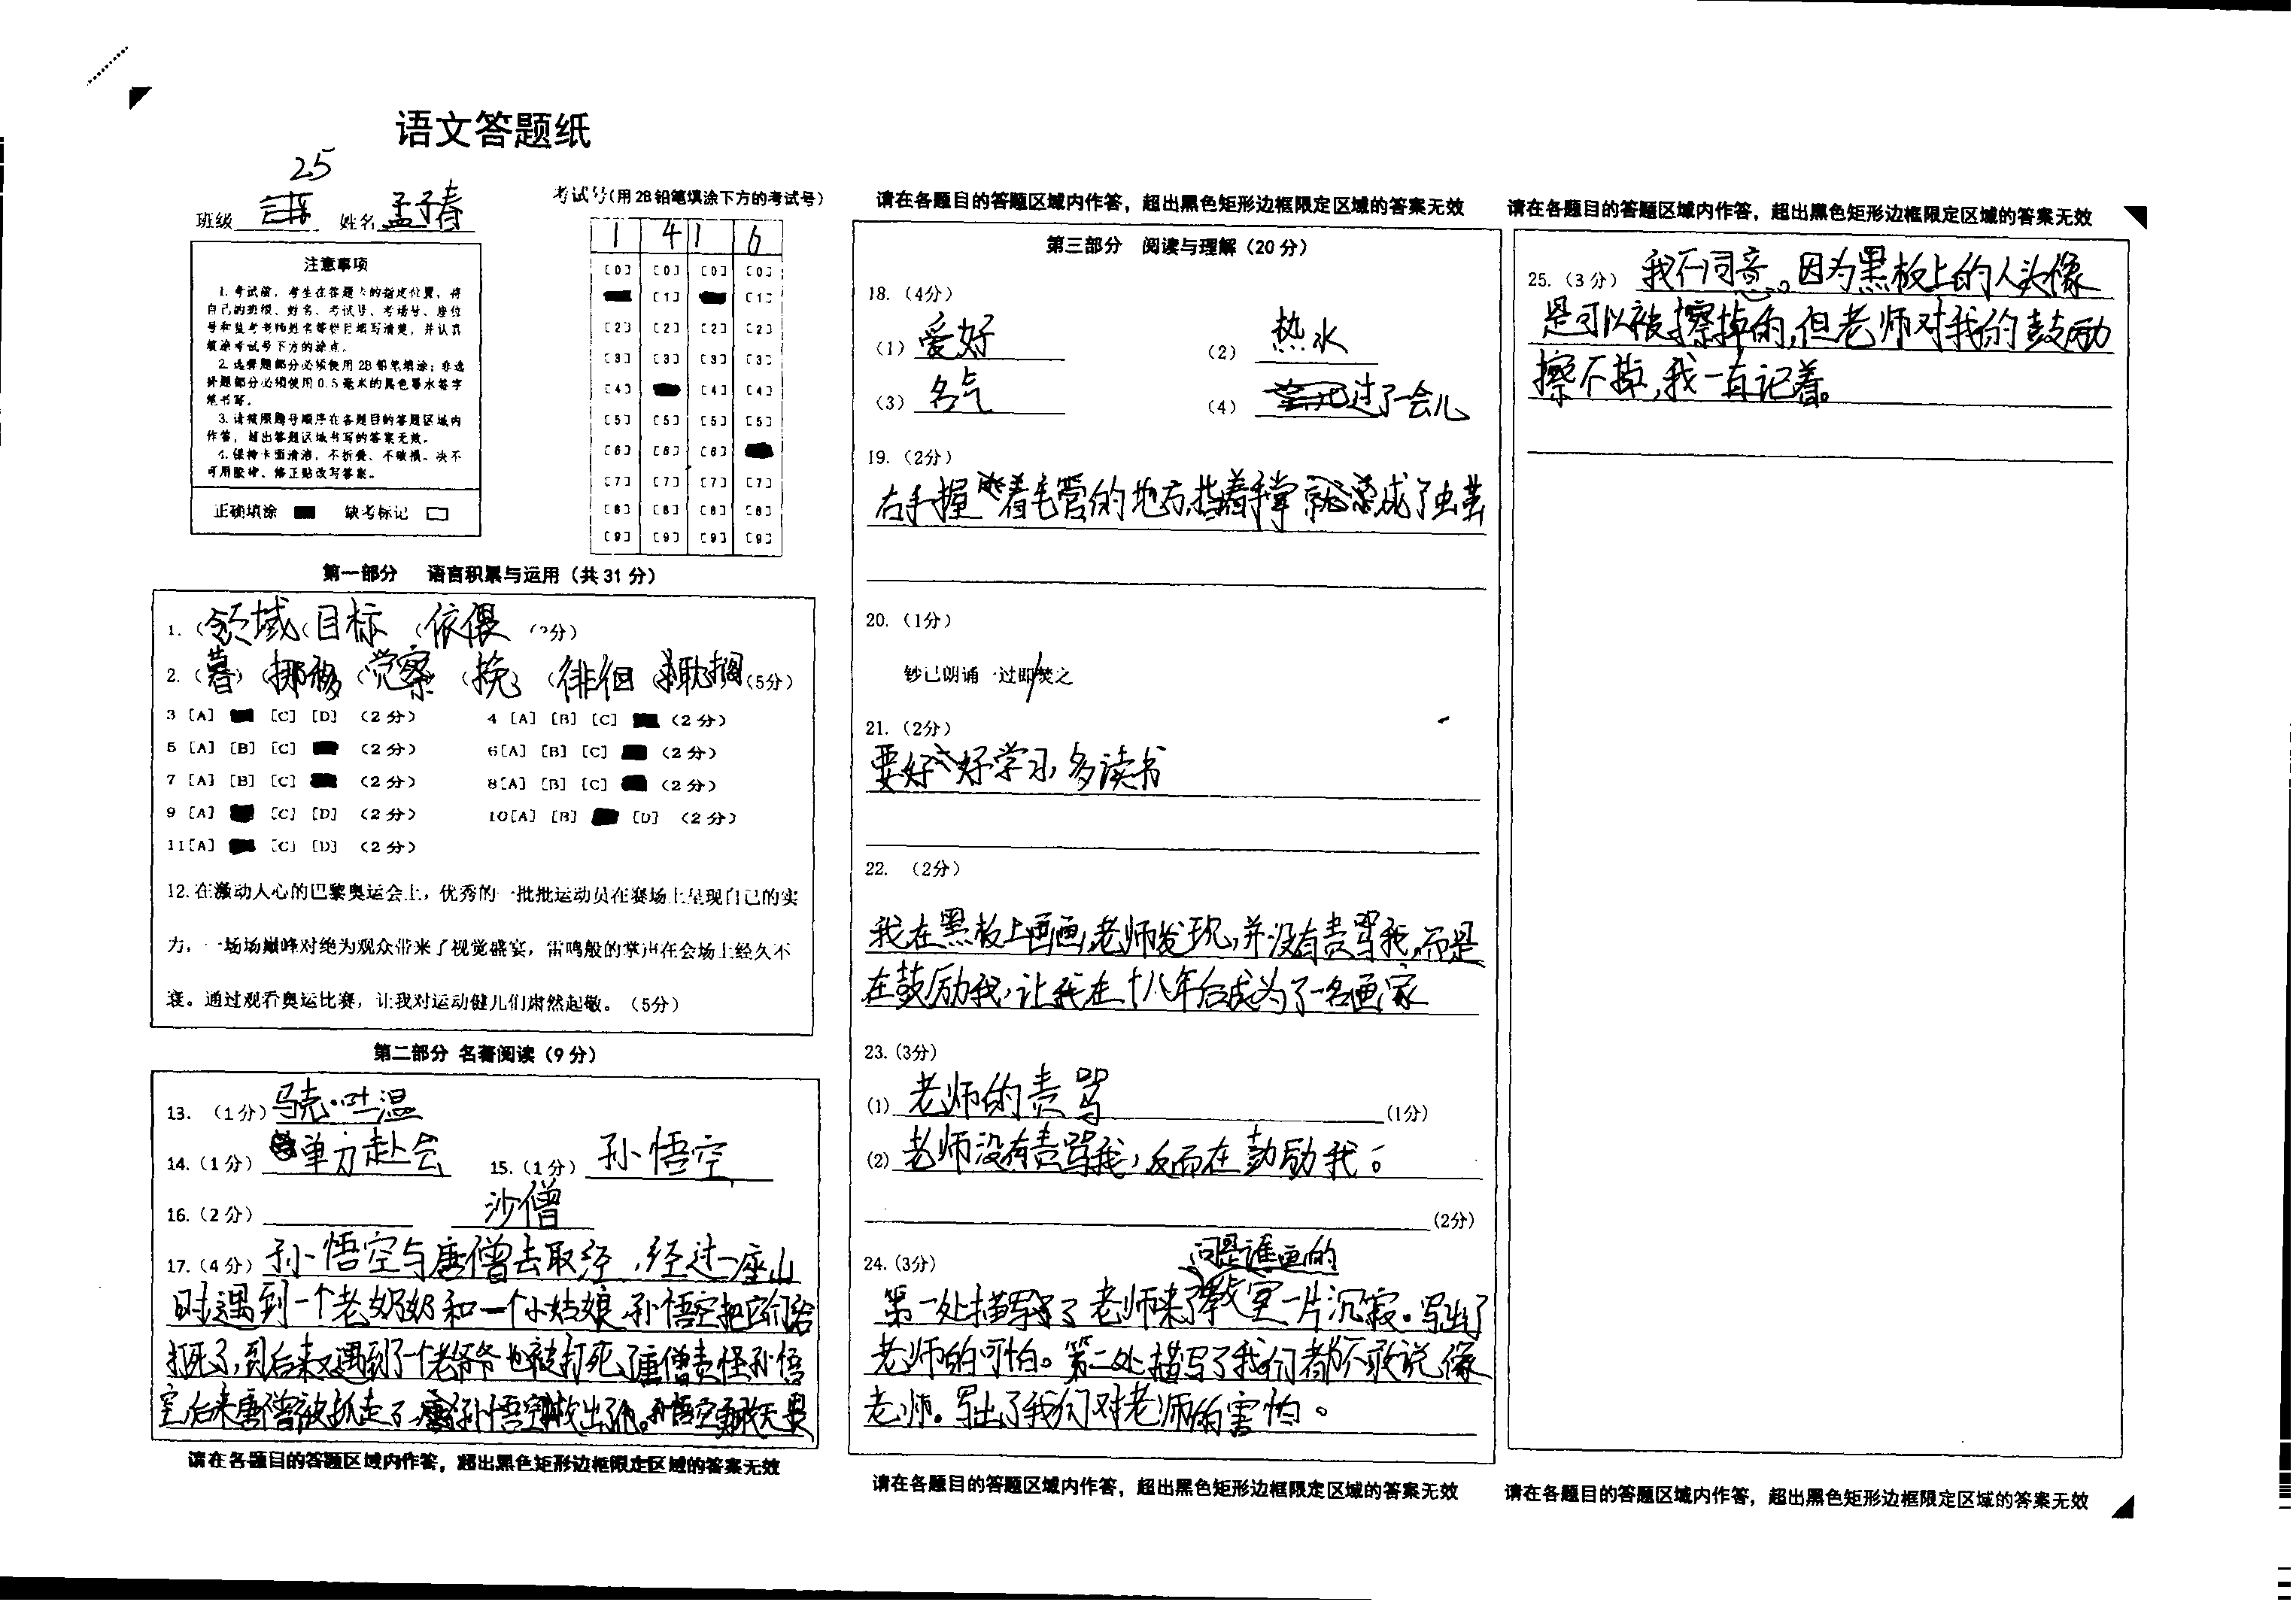 语文答题纸
25
班级 姓名 孟子春
考试号(用2B铅笔填涂下方的考试号)
1 4 1 6
注意事项
1. 考试前,考生在答题卡的指定位置,将
自己的班级、姓名、考试号、考场号、座位
号和监考老师姓名等栏目填写清楚,并认真
填涂考试号下方的涂点。
2. 选择题部分必须使用2B铅笔填涂;非选
择题部分必须使用0.5毫米的黑色墨水签字
笔书写。
3. 请按照题号顺序在各题目的答题区域内
作答,超出答题区域书写的答案无效。
4. 保持卡面清洁,不折叠、不破损。决不
可用胶带、修正贴改写答案。
正确填涂 缺考标记
[0] [0] [0] [0]
[1] [1]
[2] [2] [2] [2]
[3] [3] [3] [3]
[4] [4] [4]
[5] [5] [5] [5]
[6] [6] [6]
[7] [7] [7] [7]
[8] [8] [8] [8]
[9] [9] [9] [9]
第一部分 语言积累与运用(共31分)
1. (领域 (目标 (依偎 (3分)
2. (暮) (挪移 (觉察 (挽) (徘徊 耽搁 (5分)
3 [A] [C] [D] (2分) 4 [A] [B] [C] (2分)
5 [A] [B] [C] (2分) 6[A] [B] [C] (2分)
7 [A] [B] [C] (2分) 8[A] [B] [C] (2分)
9 [A] [C] [D] (2分) 10[A] [B] [D] (2分)
11[A] [C] [D] (2分)
12. 在激动人心的巴黎奥运会上,优秀的一批批运动员在赛场上呈现自己的实
力,一场场巅峰对绝为观众带来了视觉盛宴,雷鸣般的掌声在会场上经久不
衰。通过观看奥运比赛,让我对运动健儿们肃然起敬。(5分)
第二部分 名著阅读(9分)
13. (1分) 马克·吐温
14. (1分) 单方赴会 15. (1分) 孙悟空
16. (2分) 沙僧
17. (4分) 孙悟空与唐僧去取经,经过一座山
时遇到一个老奶奶和一个小姑娘,孙悟空把它们给
打死了,到后来又遇到了一个老爷爷也被打死了唐僧责怪孙悟
空,后来唐僧被抓走了,孙悟空救出了他。孙悟空
请在各题目的答题区域内作答,超出黑色矩形边框限定区域的答案无效
请在各题目的答题区域内作答,超出黑色矩形边框限定区域的答案无效
第三部分 阅读与理解(20分)
18. (4分)
(1) 爱好 (2) 热水
(3) 名气 (4) 过了一会儿
19. (2分)
右手握着毛管的地方,挡着手掌就
20. (1分)
钞已朗诵一过即/焚之
21. (2分)
要好好学习,多读书
22. (2分)
我在黑板上画画,老师发现,并没有责骂我,而是
在鼓励我,让我在十八年后成为了一名画家
23. (3分)
(1) 老师的责骂 (1分)
(2) 老师没有责骂我,反而在鼓励我。
(2分)
24. (3分) 问是谁画的
第一处描写了老师来了教室一片沉寂。写出了
老师的可怕。第二处描写了我们都不敢说像
老师。写出了我们对老师的害怕。
请在各题目的答题区域内作答,超出黑色矩形边框限定区域的答案无效
请在各题目的答题区域内作答,超出黑色矩形边框限定区域的答案无效
25. (3分) 我不同意。因为黑板上的人头像
是可以被擦掉的,但老师对我的鼓励
擦不掉,我一直记着。
请在各题目的答题区域内作答,超出黑色矩形边框限定区域的答案无效